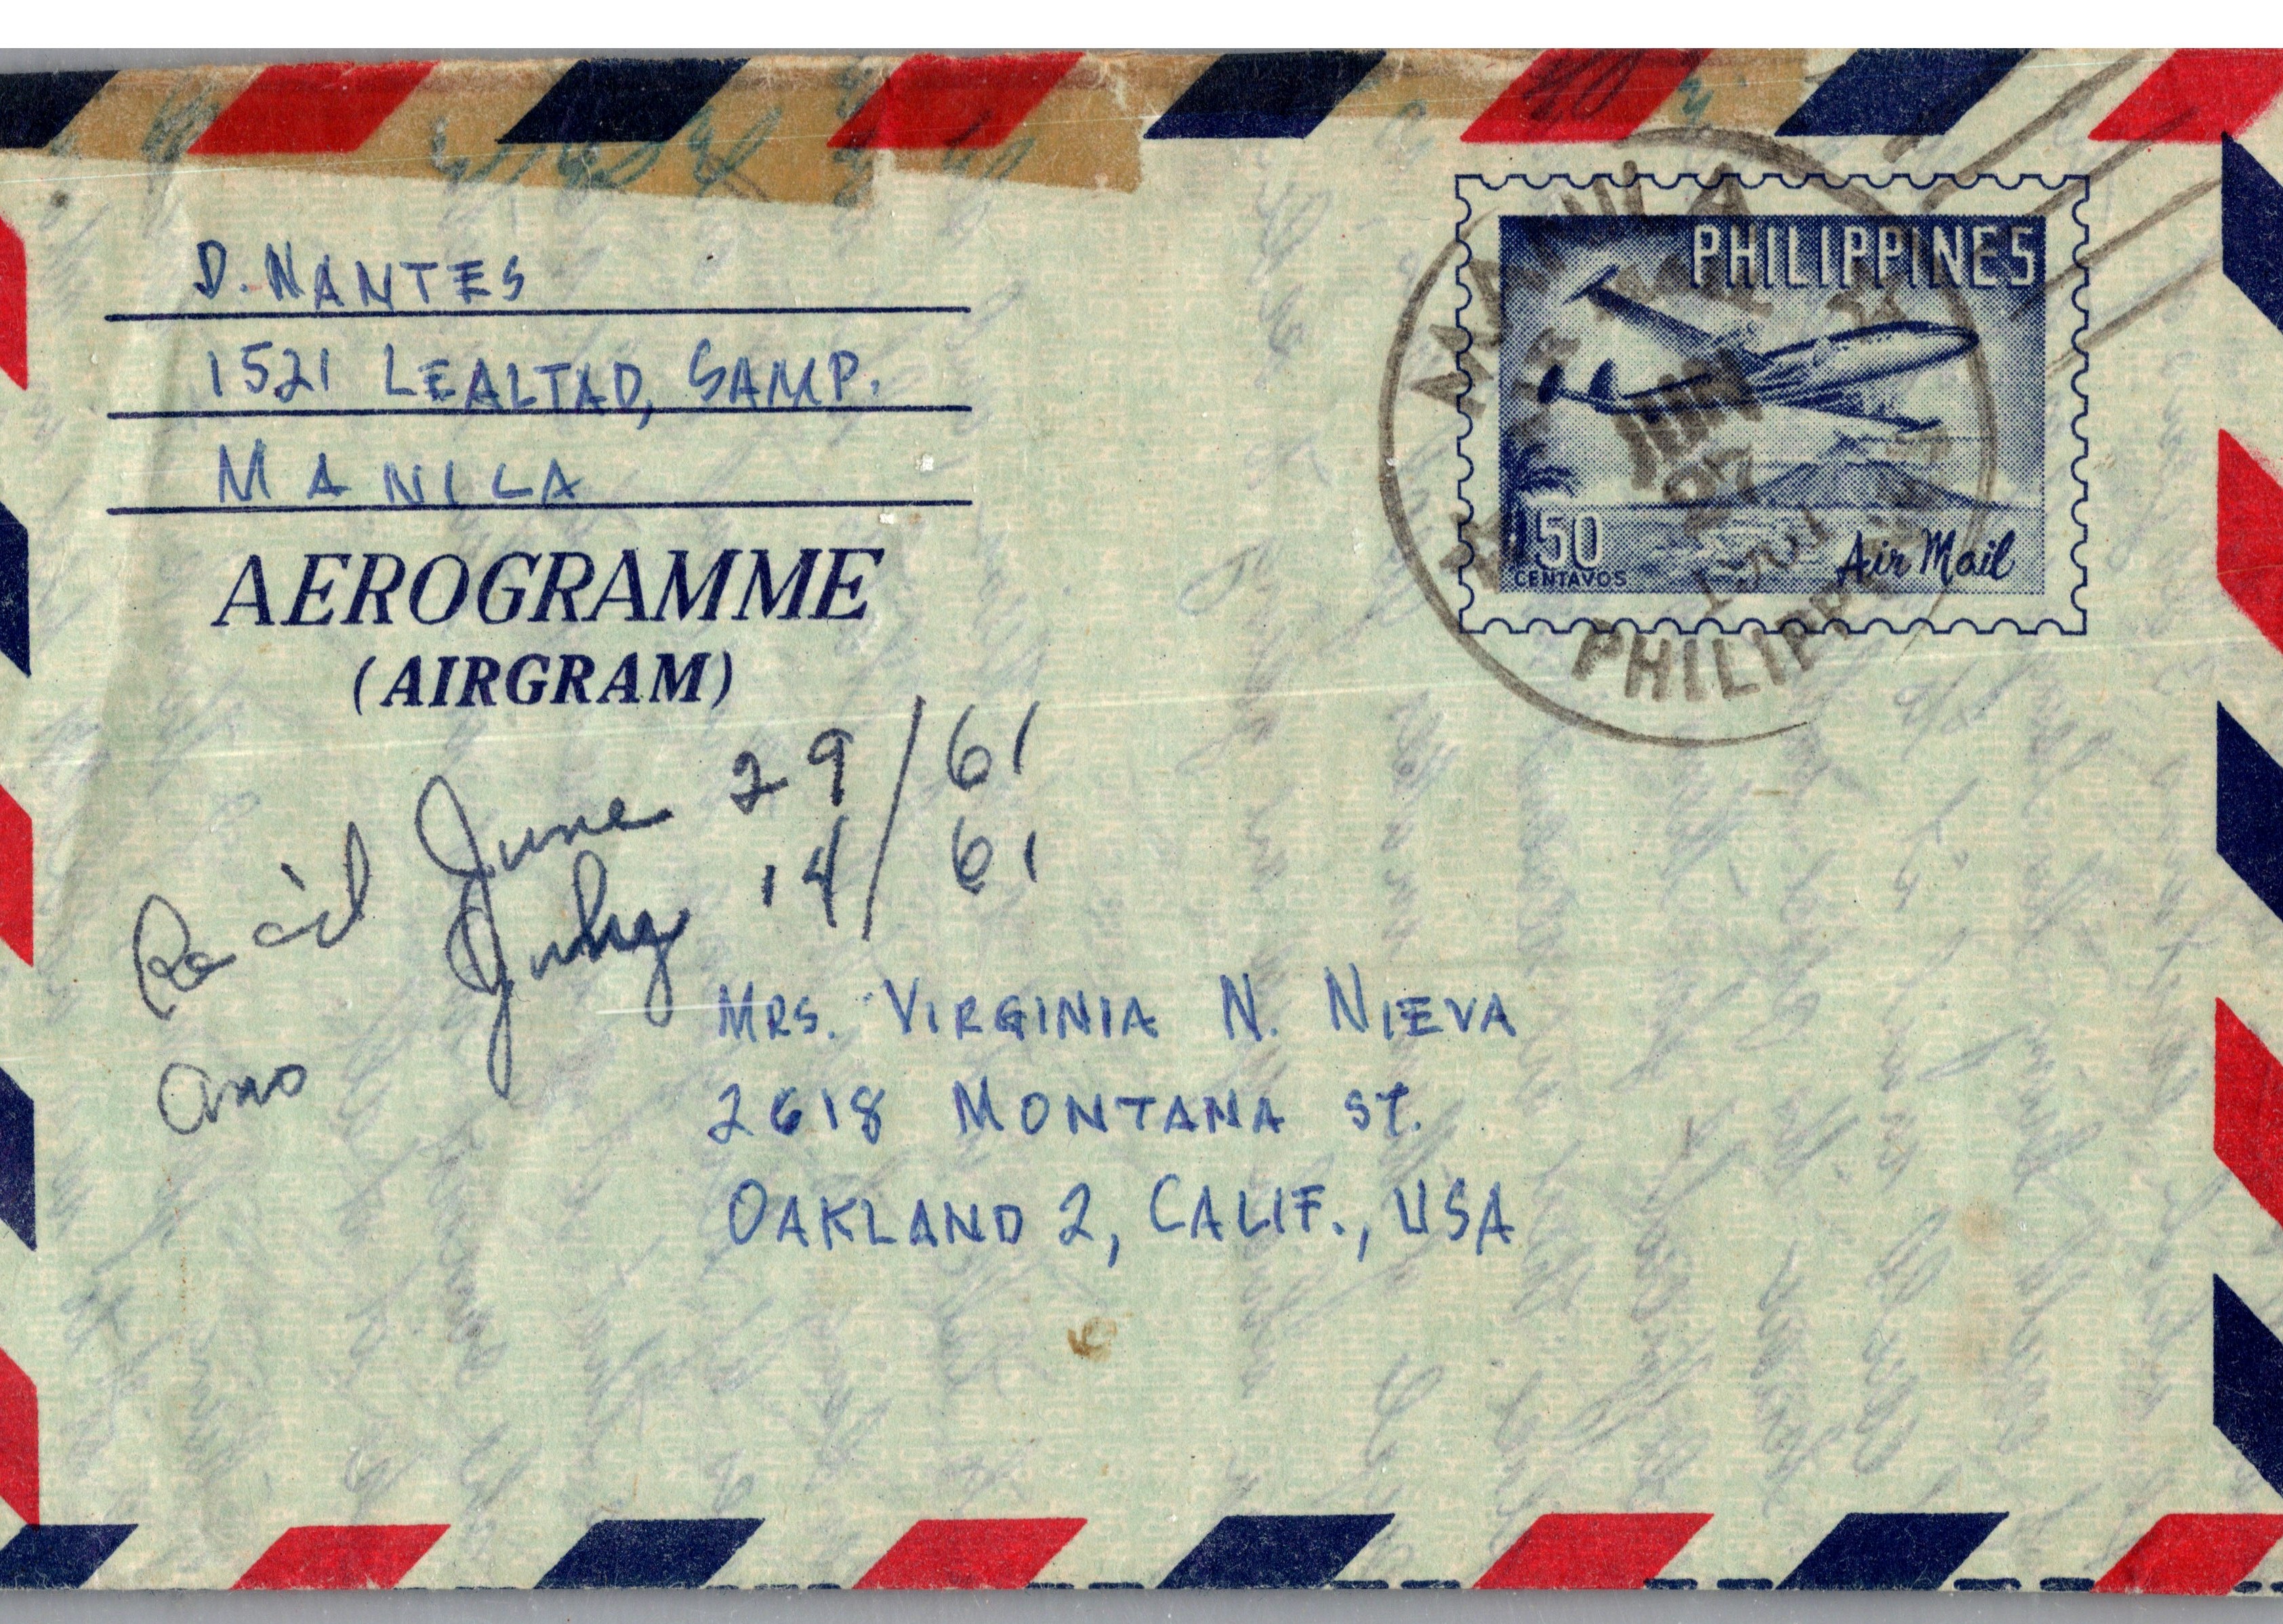 D. NANTES
1521 LEALTAD, SAMP.
MANILA
AEROGRAMME
(AIRGRAM)
PHILIPPINES
50
CENTAVOS
Air Mail
MANILA
JUN
27
PHILIPPINES
Rec'd June 29/61
ans July 14/61
MRS. VIRGINIA N. NIEVA
2618 MONTANA ST.
OAKLAND 2, CALIF., USA